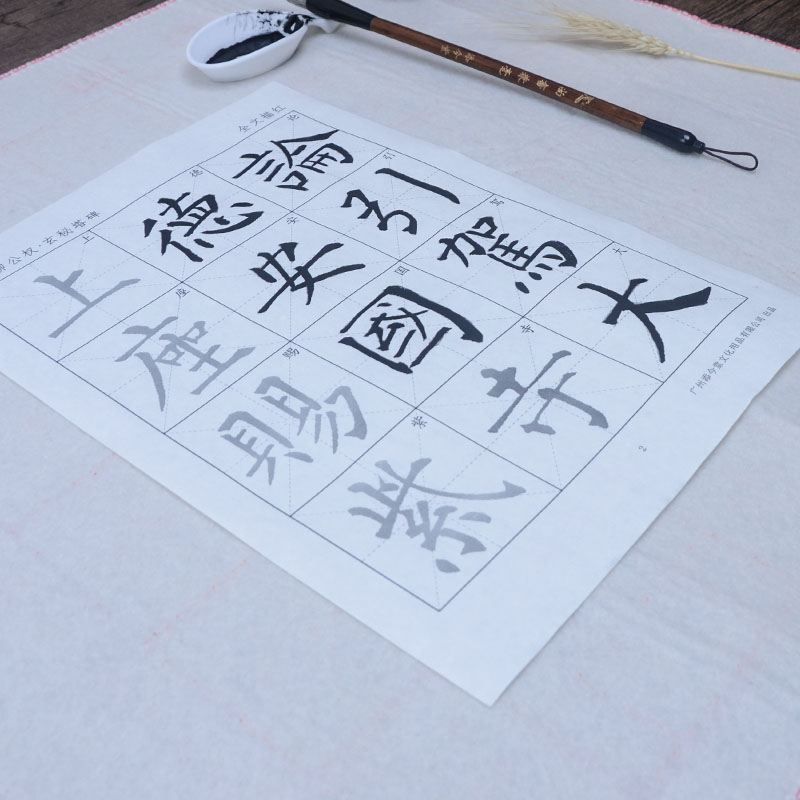 柳公权·玄秘塔碑
全文描红
论 引 驾 大
論引駕大
德 安 国 寺
德安國寺
上 座 赐 紫
上座賜紫
文化用品有限公司 出品
2